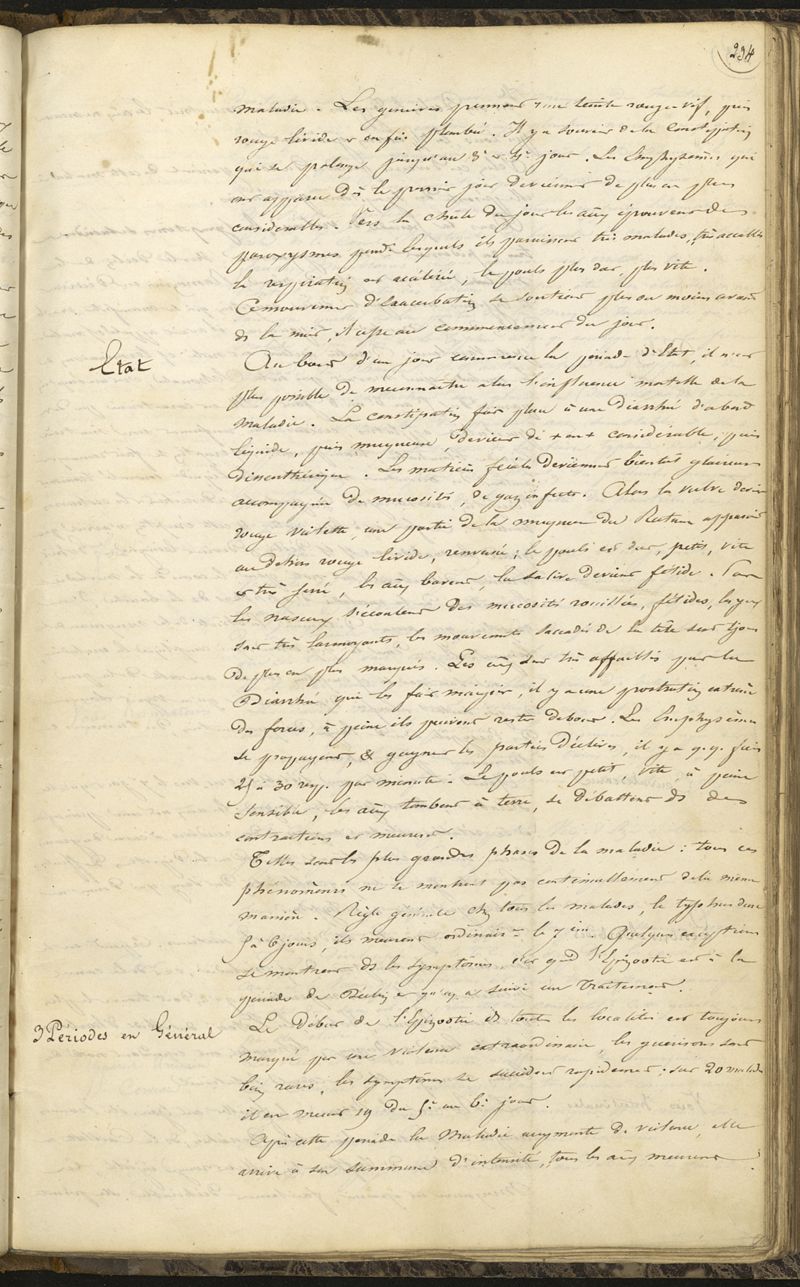 234
maladie. Les gencives prennent une teinte rouge vif, puis
rouge livide & enfin plombée. Il y a souvent de la constipation
qui se prolonge jusqu'au 3e & 4e jour. Les Emphysemes qui
ont apparu dès le premier jour deviennent de plus en plus
considerables. Vers la chûte du jour les aux éprouvent des
paroxysmes pendt lesquels ils paraissent très malades, très accablés
la respiration est accélérée, le pouls plus dur, plus vite.
Ce mouvement d'exacerbation se soutient plus ou moins avant
ds la nuit, & cesse au commencement du jour.
Etat
Au bout d'un jour commence la periode d'Etat, il n'est
plus possible de méconnaitre alors l'influence mortelle de la
maladie. La constipation fait place à une diarrhée d'abord
liquide, puis muqueuse, devient de + en + considérable, puis
dissenthérique. Les matieres fécales deviennent bientôt glaireuses
accompagnées de mucosités, de gaz infects. Alors la vulve devient
rouge violette, une partie de la muqueuse du Rectum apparait
au dehors rouge livide, renversée; le pouls est dur, petit, vite
& très serré, les aux bavent, la salive devient fétide. Par
les naseaux s'écoulent des mucosités rouillées, fétides, les yeux
sont très larmoyants, les mouvements saccadés de la tête sont tjours
de plus en plus marqués. Les aux sont très affaiblis par la
Diarrhée qui les fait maigrir, il y a une prostration extrême
des forces, à peine ils peuvent rester debout. Les Emphysèmes
se propagent, & gagnent les parties déclives, il y a q.q. fois
25 à 30 resp. par minute. Le pouls est petit, vite, à peine
sensible, les aux tombent à terre, se débattent ds des
contractions et meurent.
Telles sont les plus grandes phases de la maladie: tous ces
phénomènes ne se montrent pas continuellement de la même
manière. Règle générale chez tous les malades, le typhus dure
5 à 6 jours, ils meurent ordinairt le 7 ème. Quelques exceptions
se montrent ds les symptômes, c'est quand l'Epizootie est à la
periode de Déclin & qu'on a suivi un traitement.
3 Périodes en Général
Le Début de l'Epizootie ds toutes les localités est toujours
marqué par une violence extraordinaire, les guérisons sont
bien rares, les symptômes se succèdent rapidement; sur 20 malades
il en meurt 19 du 5e au 6e jour.
Après cette periode la Maladie augmente de violence, elle
arrive à son summum d'intensité, tous les aux meurent